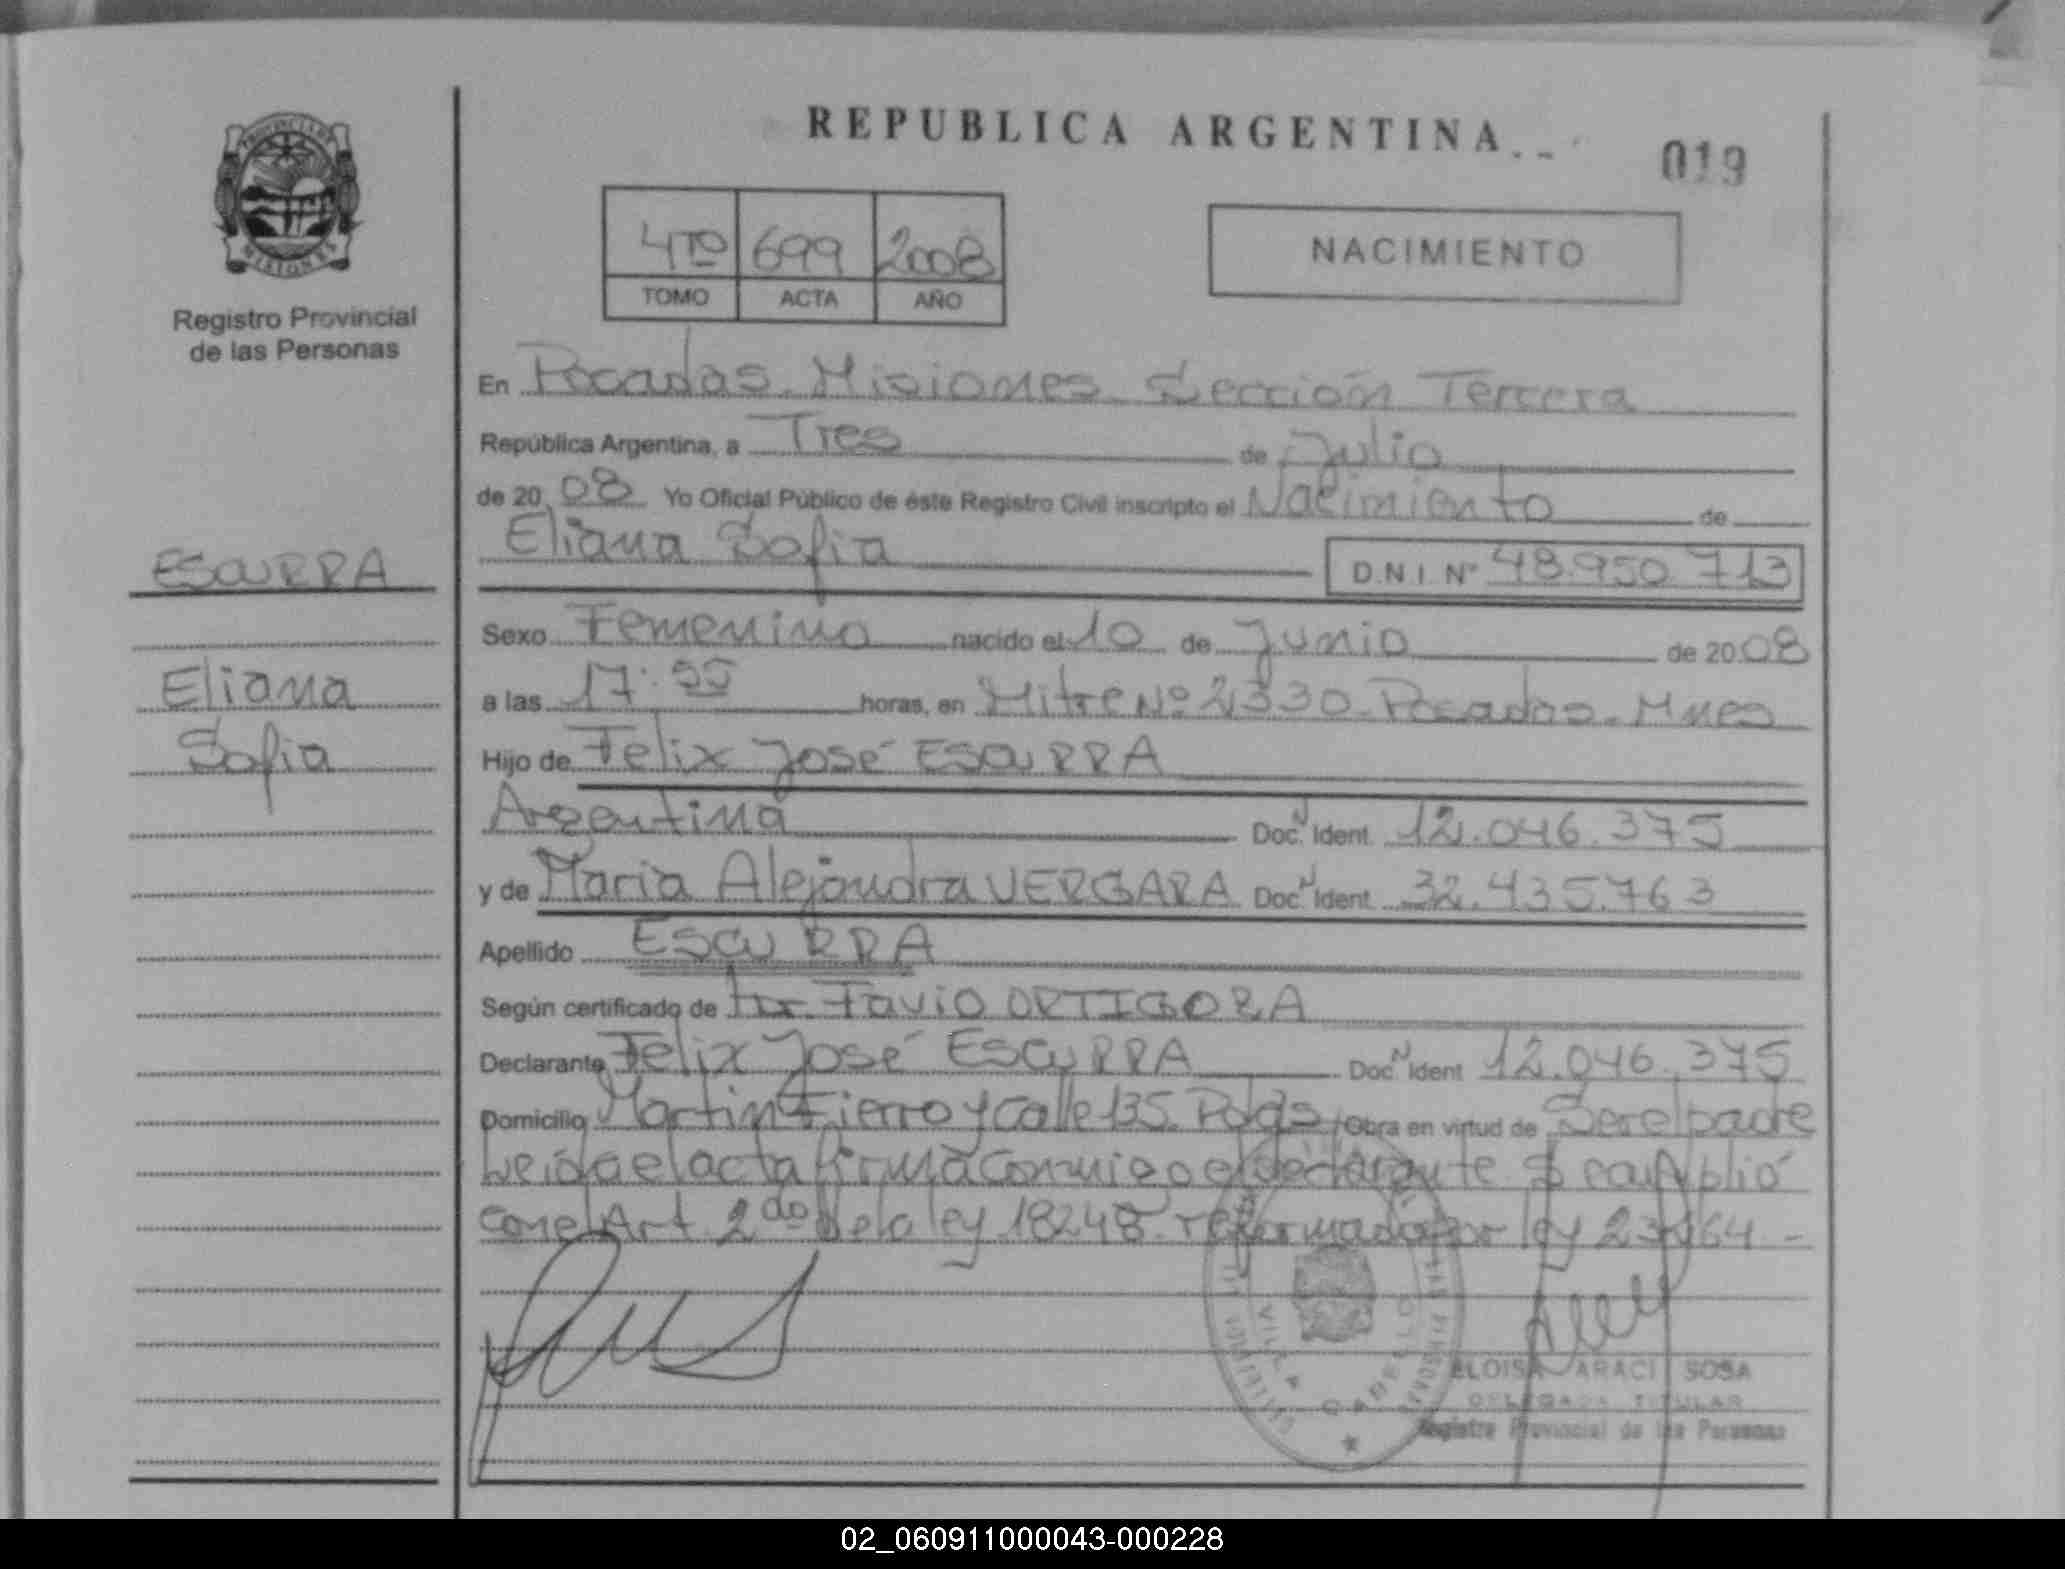 REPUBLICA ARGENTINA
019
PROVINCIA DE
MISIONES
Registro Provincial
de las Personas
4TO 699 2008
TOMO ACTA AÑO
NACIMIENTO
En Posadas. Misiones. Sección Tercera
República Argentina, a Tres de Julio
de 2008 Yo Oficial Público de éste Registro Civil inscripto el Nacimiento de
Eliana Sofia D.N.I. Nº 48.950.713
ESCURRA
Eliana
Sofia
Sexo Femenino nacido el 10 de Junio de 2008
a las 17:55 horas, en Mitre Nº 2330. Posadas. Mnes
Hijo de Felix José ESCURRA
Argentina Doc. N Ident. 12.046.375
y de Maria Alejandra VERGARA Doc. N Ident. 32.435.763
Apellido ESCURRA
Según certificado de Dr. Favio ORTIGOZA
Declarante Felix José ESCURRA Doc. N Ident 12.046.375
Domicilio Martin Fierro y Calle 135. Pdas Obra en virtud de Ser el padre
Leida el acta firma conmigo el declarante. Se cumplió
con el Art. 2do de la ley 18248. reformada por ley 23264.-
VILLA CABELLO
ELOISA ARACI SOSA
DELEGADA TITULAR
Registro Provincial de las Personas
02_060911000043-000228